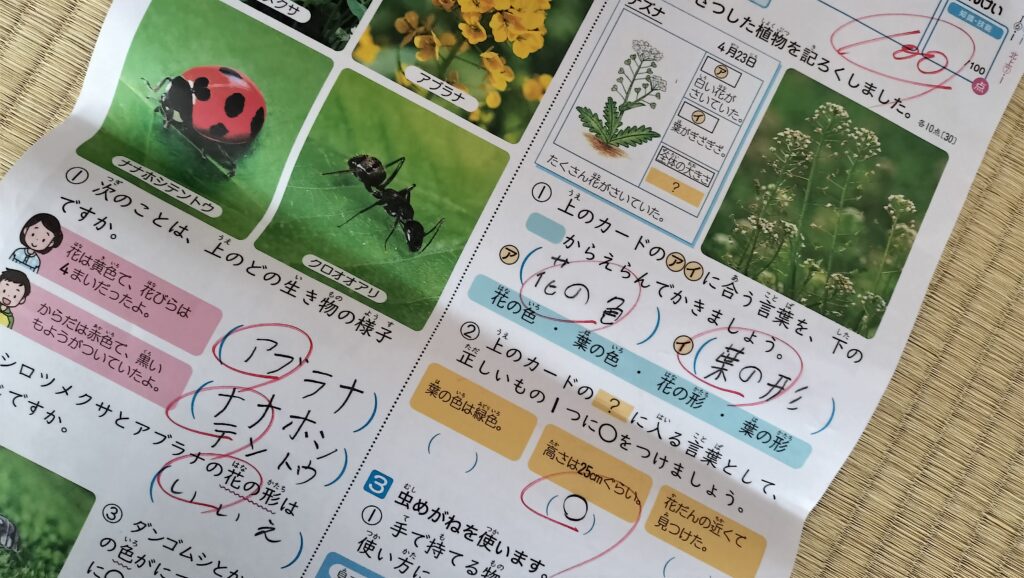 ナナホシテントウ
アブラナ
クロオオアリ
① 次のことは、上のどの生き物の様子
ですか。
花は黄色で、花びらは
4まいだったよ。
からだは赤色で、黒い
もようがついていたよ。
アブラナ
ナナホシ
テントウ
シロツメクサとアブラナの花の形は
ですか。
いいえ
③ ダンゴムシとか
の色がに
に○
ナズナ
4月23日
ア
白い花が
さいていた。
イ
葉がぎざぎざ。
全体の大きさ
?
たくさん花がさいていた。
植物を記ろくしました。
各10点(30)
100
/100
点
① 上のカードのアイに合う言葉を、下の
からえらんでかきましょう。
ア
花の色
イ
葉の形
花の色・葉の色・花の形・葉の形
② 上のカードの ? に入る言葉として、
正しいもの1つに○をつけましょう。
葉の色は緑色。
高さは25cmぐらい。
花だんの近くで
見つけた。
○
3 虫めがねを使います。
① 手で持てる物
使い方に